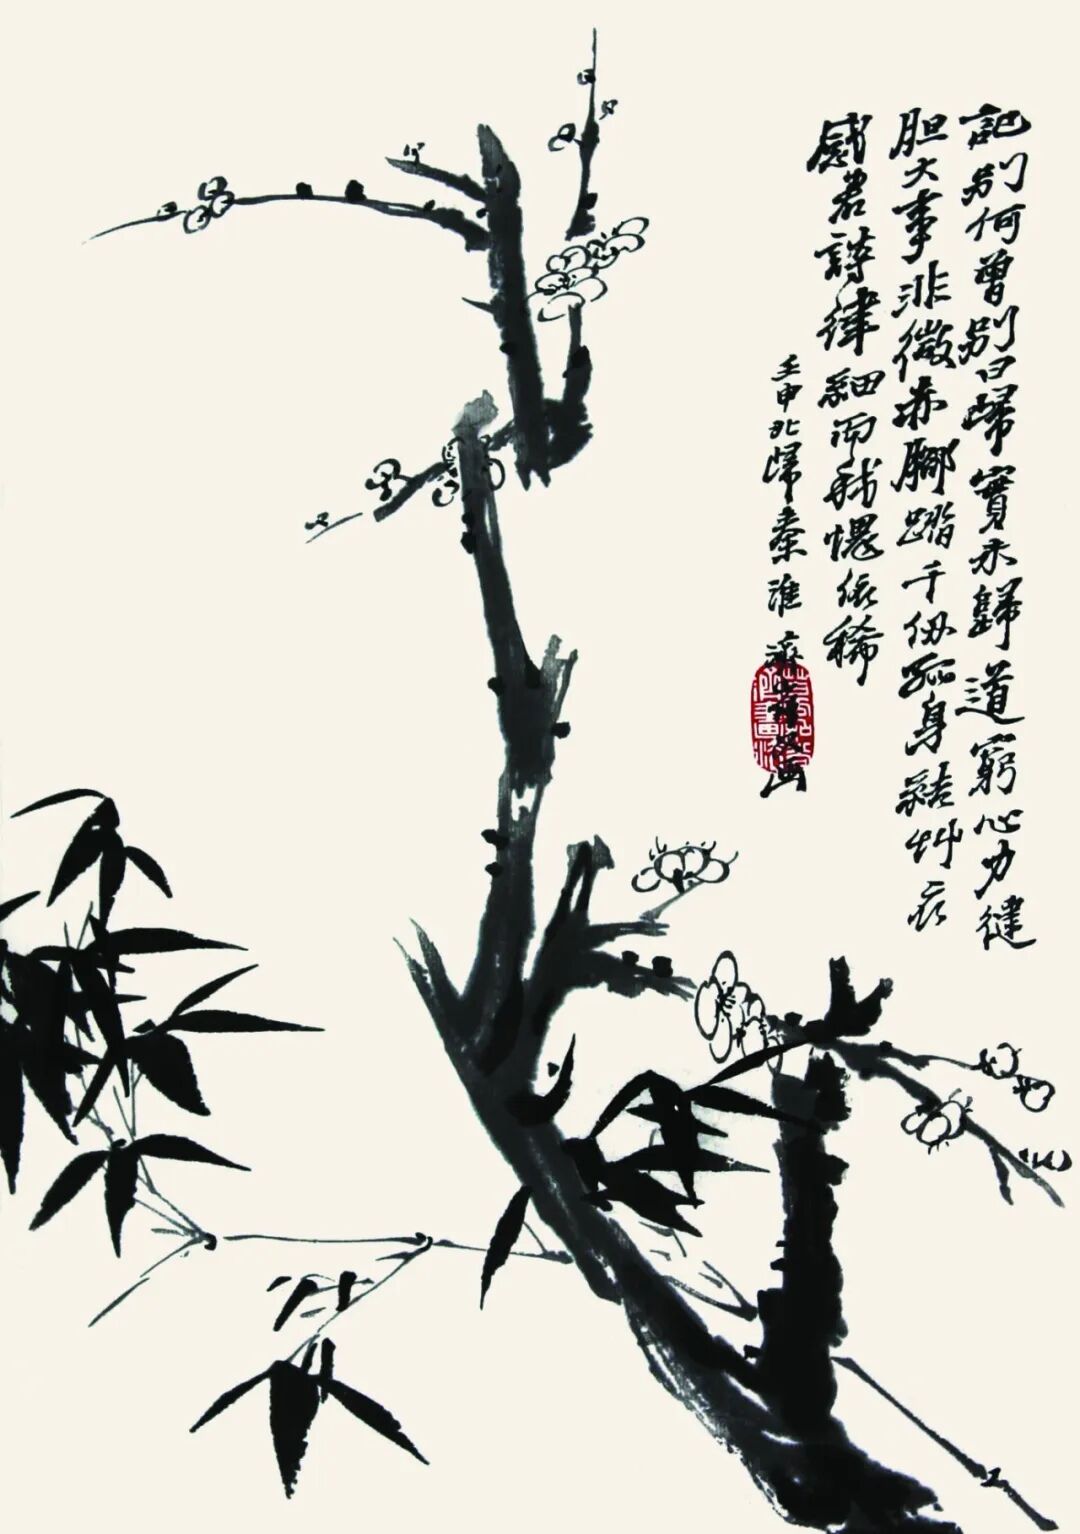 記别何曾别曰歸實未歸道窮心力健
胆大事非微赤腳踏千仞孤身結草衣
感君詩律細而我愧依稀
壬申北歸秦淮